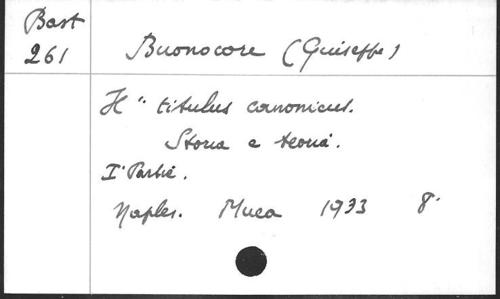 Bast
261
Buonocore (Guiseppe)
Il "titulus canonicus.
Storia e teoria.
I° Partie.
Naples. 1933 8°